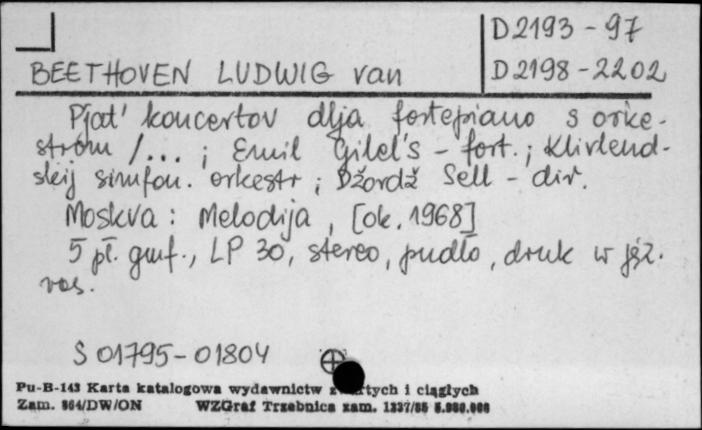 D2193-97
BEETHOVEN LUDWIG van D2198-2202
Pjat' koncertov dlja fortepiano s orke-
strom /... ; Emil Gilel's - fort. ; Klivlend-
skij simfon. orkestr ; Džordž Sell - dir.
Moskva : Melodija , [ok. 1968]
5 pł. gmf., LP 30, stereo, pudło, druk w jęz.
ros.
S 01795-01804
Pu-B-143 Karta katalogowa wydawnictw i ciągłych
Zam. 864/DW/ON WZGraf Trzebnica zam.